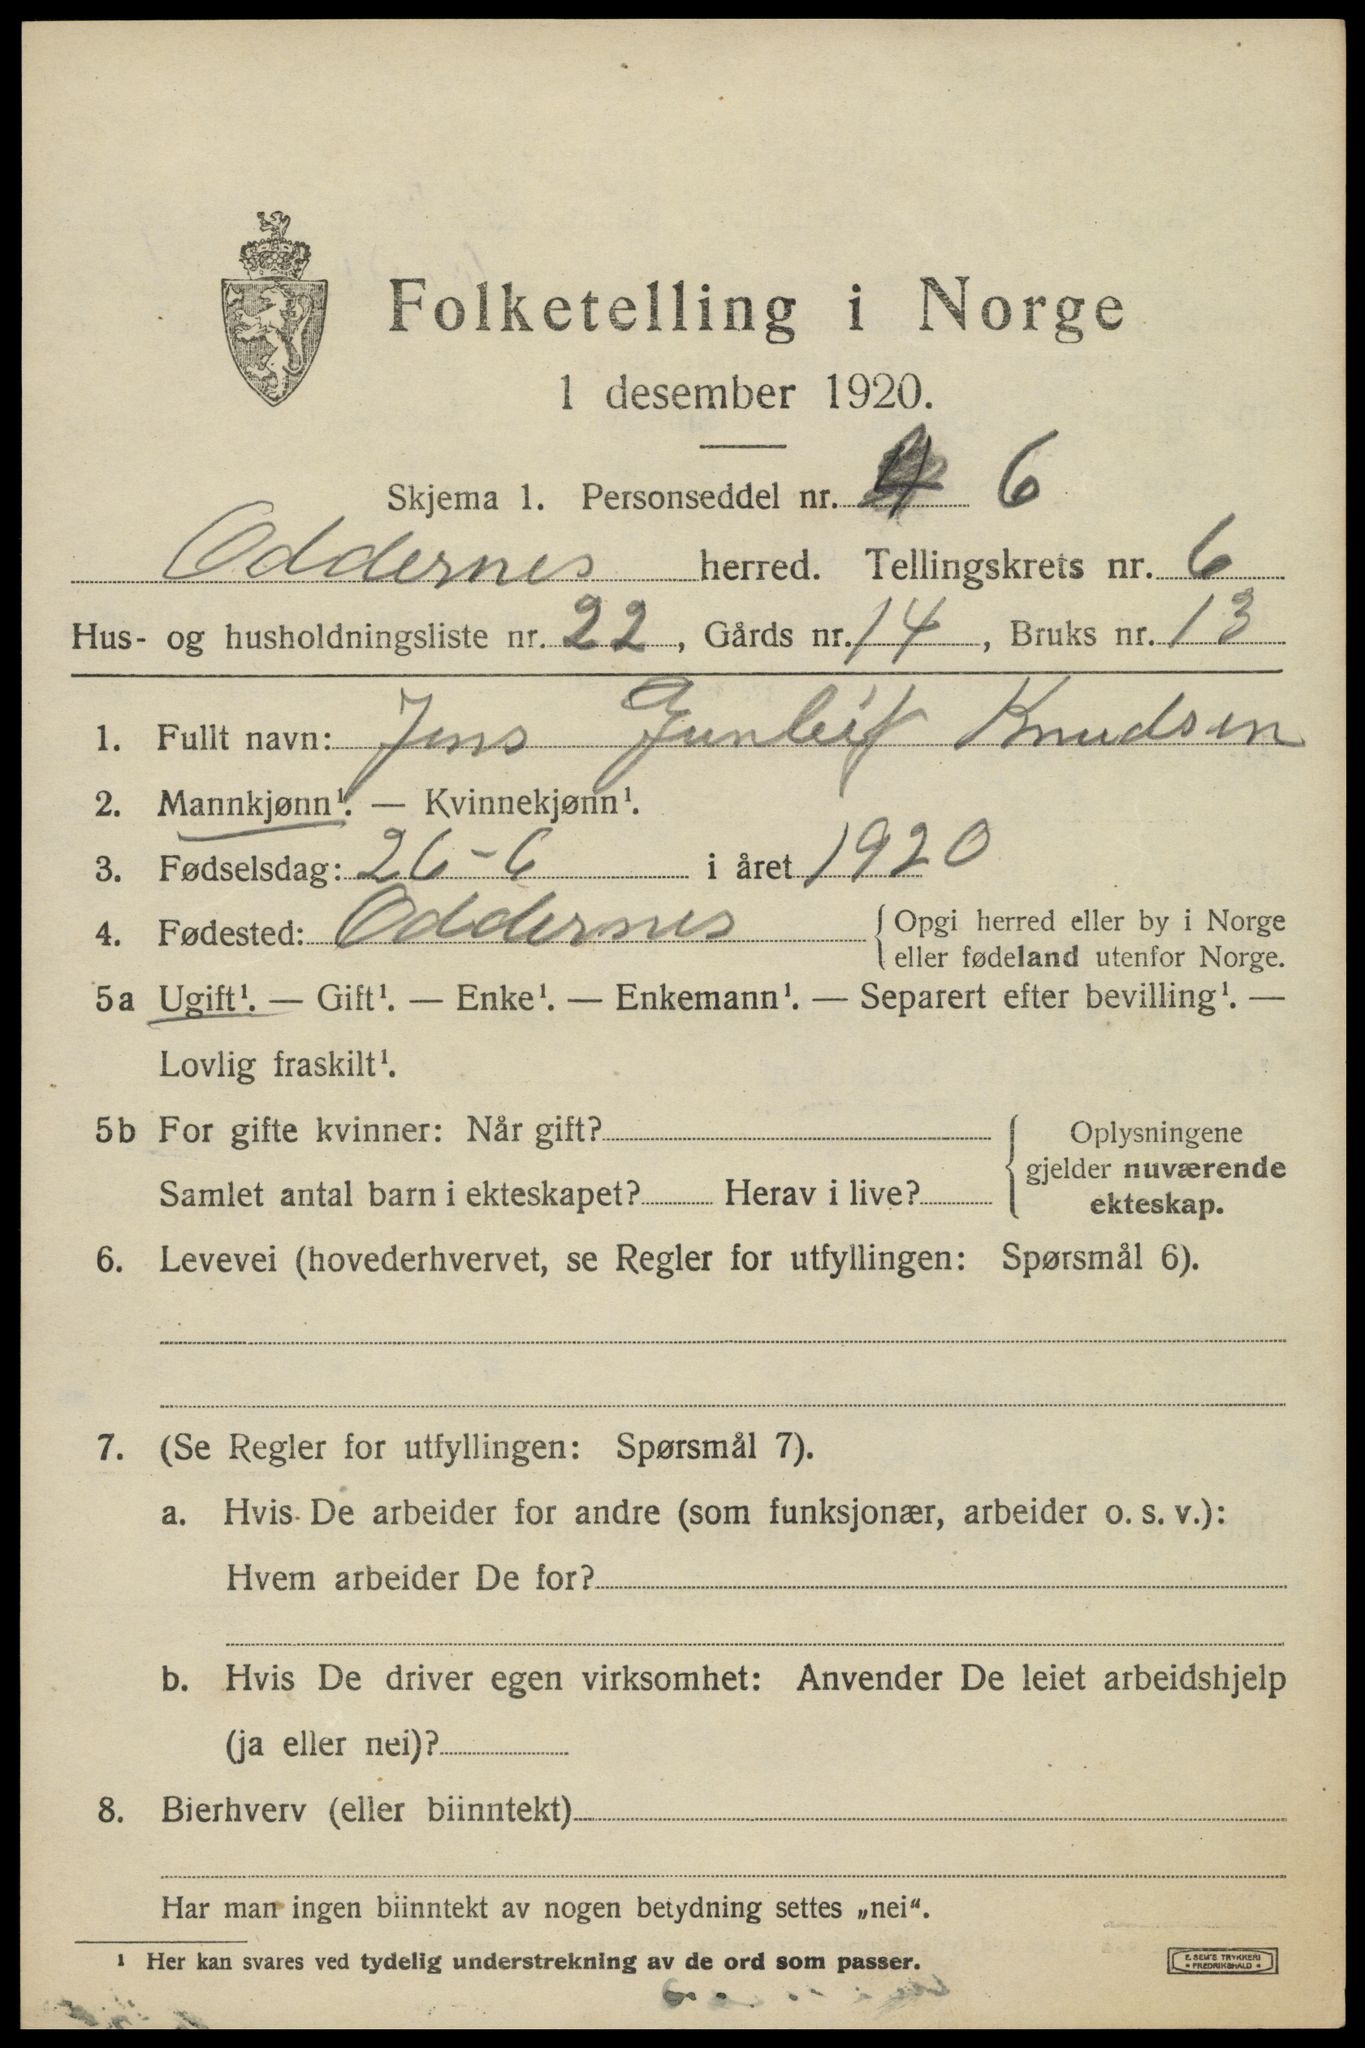 Folketelling i Norge
1 desember 1920.
Skjema 1. Personseddel nr. 6
Oddernes herred. Tellingskrets nr. 6
Hus- og husholdningsliste nr. 22, Gårds nr. 14, Bruks nr. 13
1. Fullt navn: Jens Gunleif Knudsen
2. Mannkjønn¹. — Kvinnekjønn¹.
3. Fødselsdag: 26-6 i året 1920
4. Fødested: Oddernes {Opgi herred eller by i Norge
eller fødeland utenfor Norge.
5a Ugift¹. — Gift¹. — Enke¹. — Enkemann¹. — Separert efter bevilling¹. —
Lovlig fraskilt¹.
5b For gifte kvinner: Når gift?
Samlet antal barn i ekteskapet? Herav i live?
{Oplysningene
gjelder nuværende
ekteskap.
6. Levevei (hovederhvervet, se Regler for utfyllingen: Spørsmål 6).
7. (Se Regler for utfyllingen: Spørsmål 7).
a. Hvis De arbeider for andre (som funksjonær, arbeider o. s. v.):
Hvem arbeider De for?
b. Hvis De driver egen virksomhet: Anvender De leiet arbeidshjelp
(ja eller nei)?
8. Bierhverv (eller biinntekt)
Har man ingen biinntekt av nogen betydning settes „nei“.
¹ Her kan svares ved tydelig understrekning av de ord som passer.
E. SEM'S TRYKKERI
• FREDRIKSHALD •